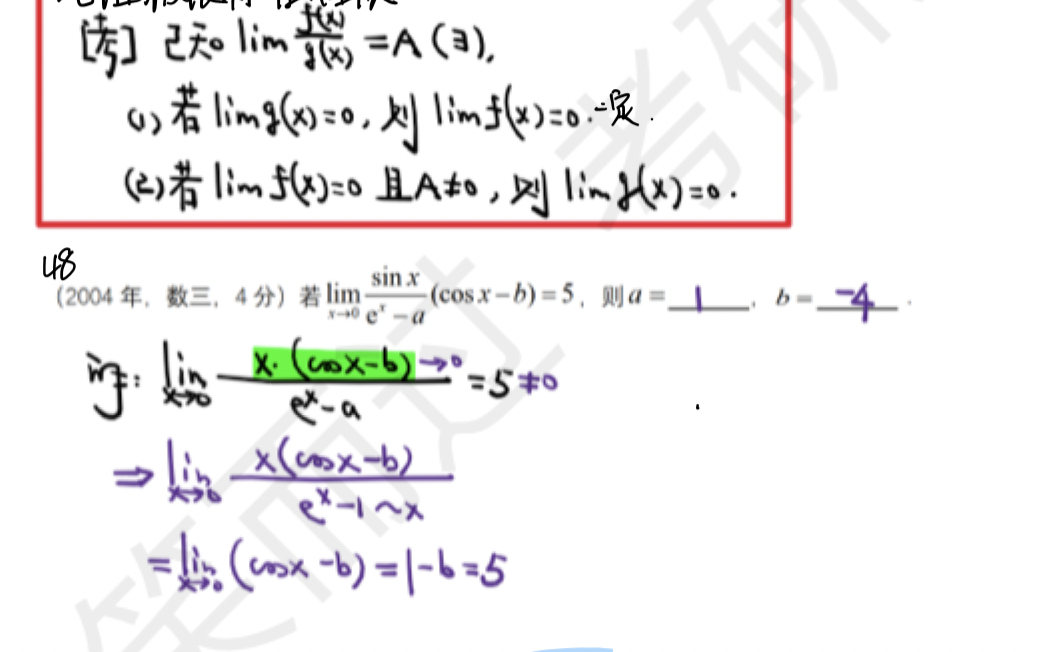 [考] 已知 lim f(x)/g(x) = A (∃),
(1) 若 lim g(x)=0, 则 lim f(x)=0. 一定.
(2) 若 lim f(x)=0 且 A≠0, 则 lim g(x)=0.
48
(2004 年, 数三, 4 分) 若 lim x→0 sin x/(e^x − a) (cos x − b) = 5, 则 a = 1, b = -4.
lim x→0 x·(cosx−b)→0 / (e^x − a) = 5 ≠0
⇒ lim x→0 x(cosx−b) / (e^x−1 ~ x)
= lim x→0 (cosx −b) = 1−b = 5
笑而过 考研